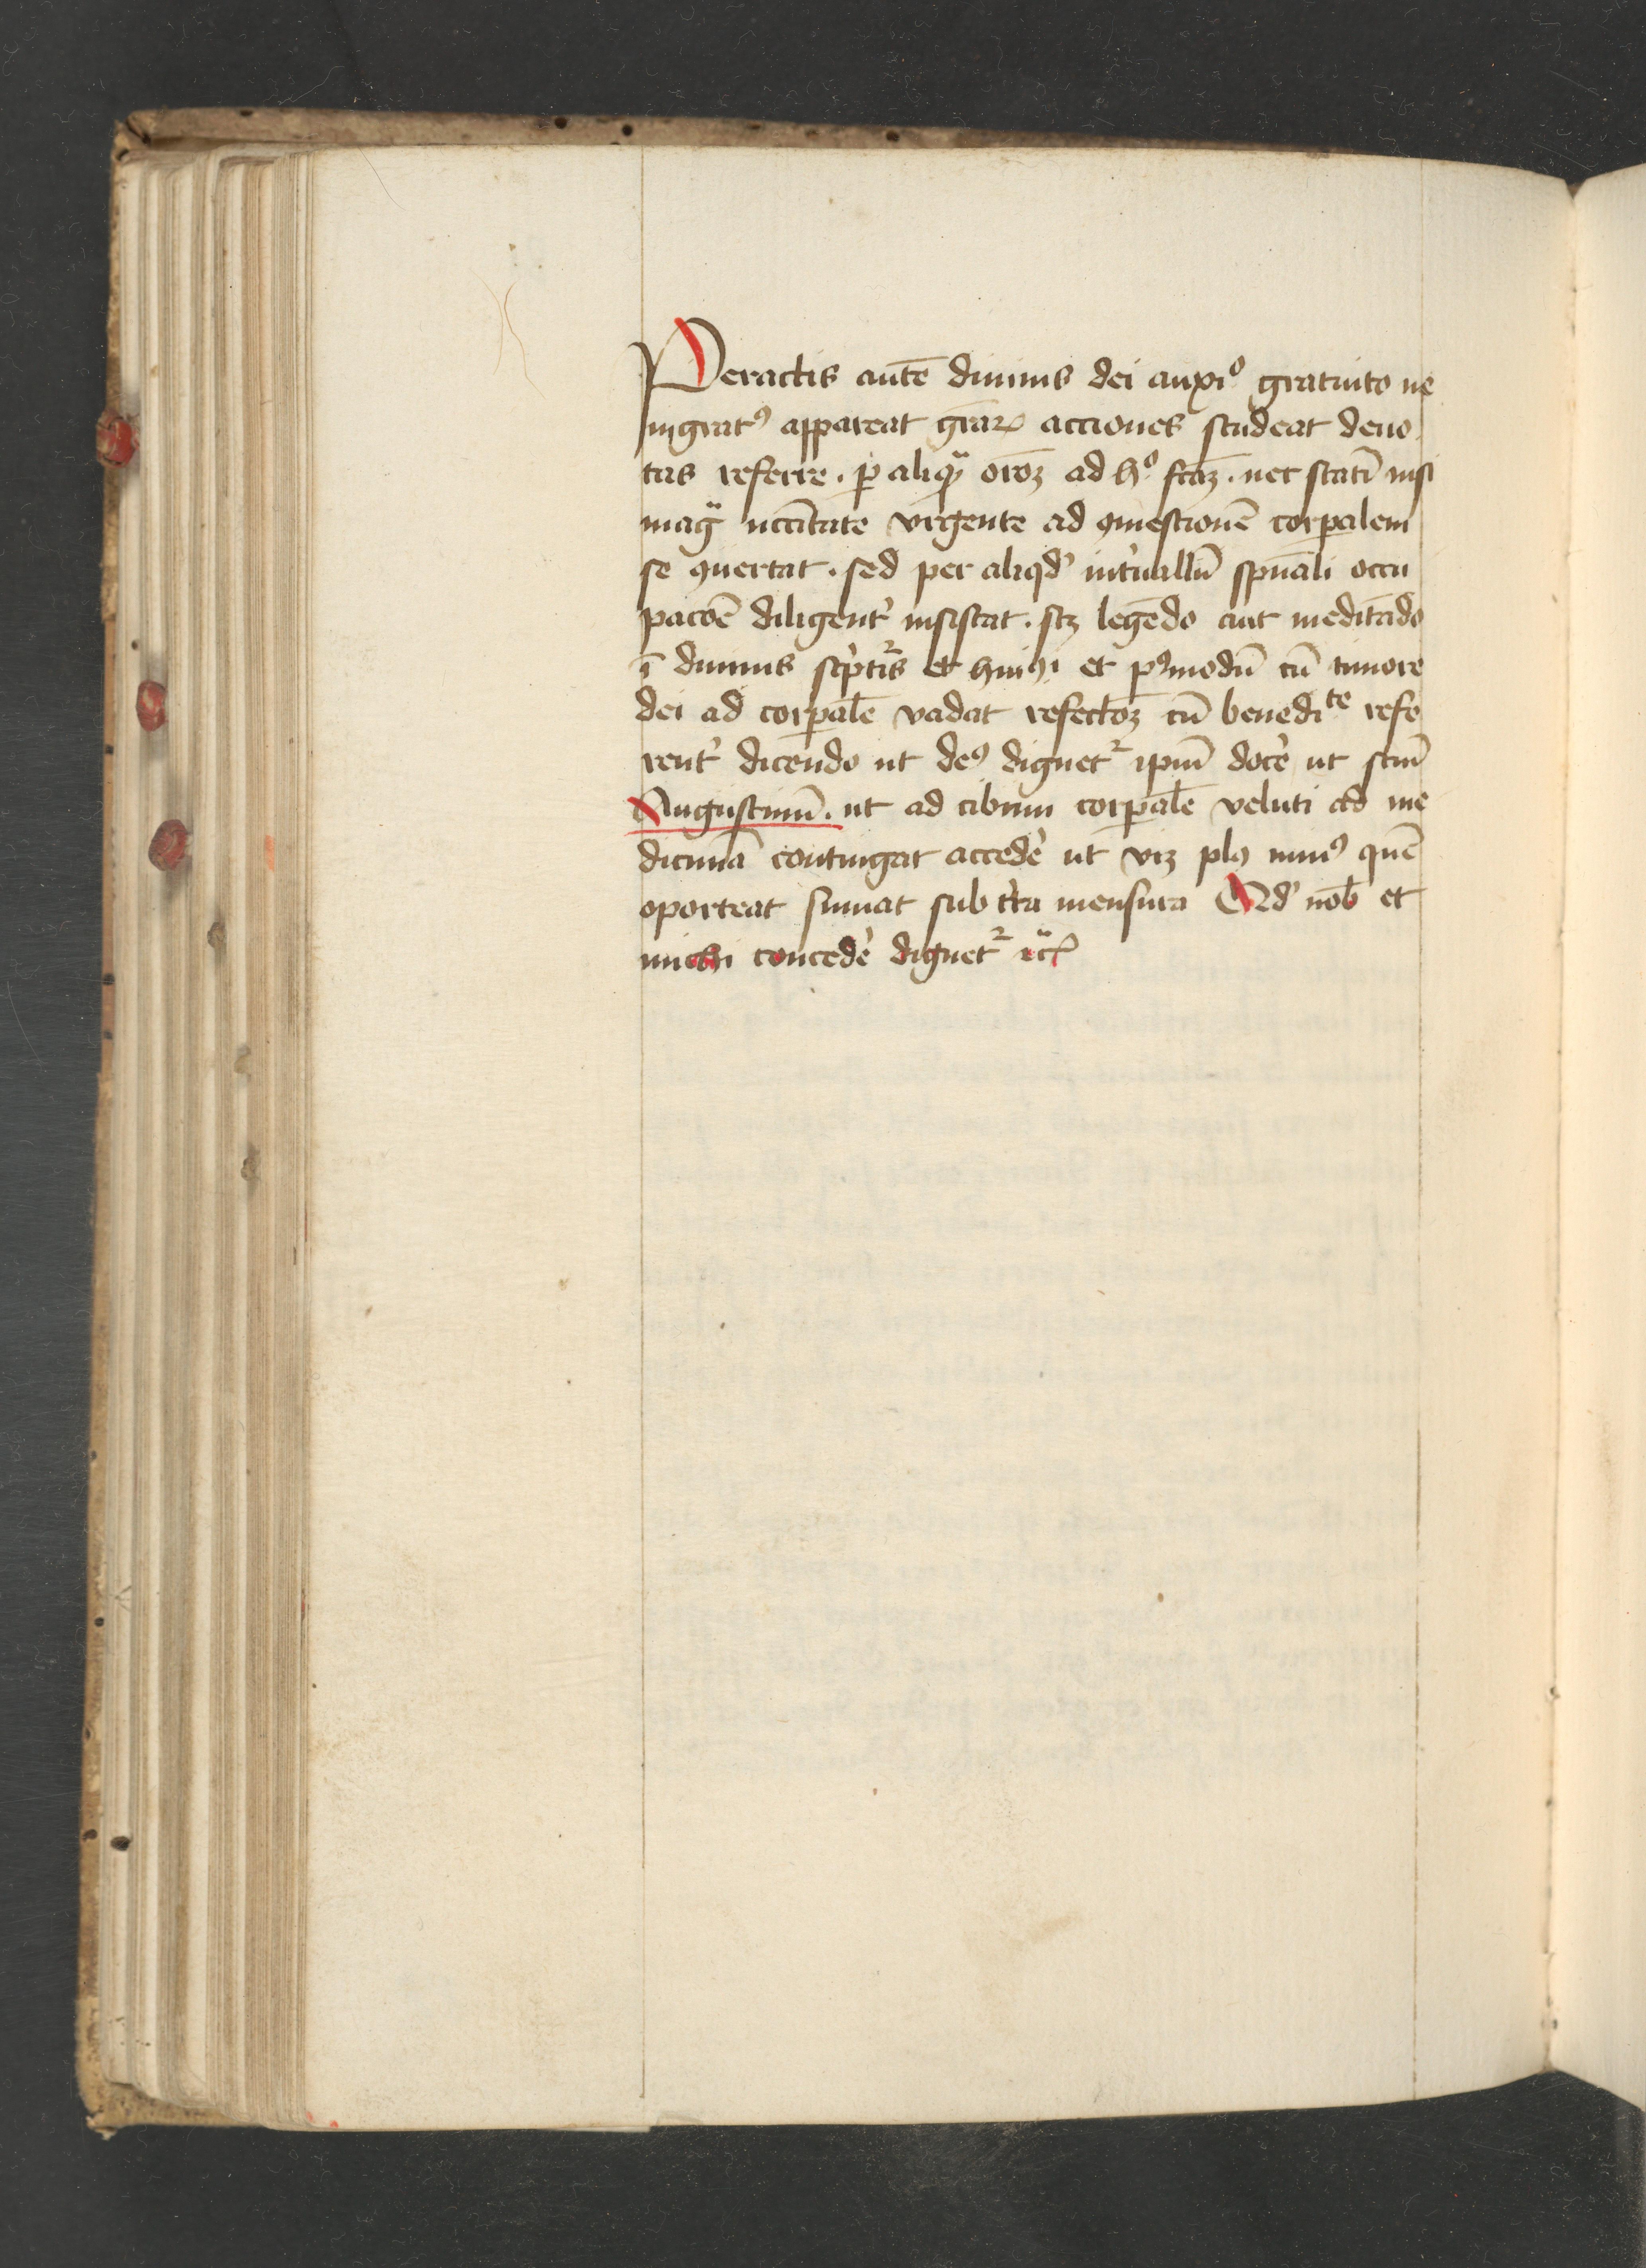 Peractis autē diuinis dei auxi° gratuito ne
ingratꝰ appareat grāꝝ acciones studeat deuo
tas referre . ꝑ aliqͣ orōꝫ ad h° fcāꝫ . nec statī nisi
magͣ nccītate vrgente ad quiescionē corꝑalem
se ꝯuertat . sed per aliqd' int'uallū spūali occu
pacōē diligent' insistat . scꝫ legēdo aut meditādo
ī diuinis sc'ptʳis et huiꝰi et pꝰmodū cū timore
dei ad corꝑalē vadat refectōꝫ cū benediᵗᵉ refe
rent' dicendo ut deꝰ dignetʳ ipm̄ docē' ut scm̄
Augustinū . ut ad cibum corꝑalē veluti ad me
dicinā contingat accedē' ut vꝫ plꝰ minꝰ quē
oporteat sumat sub c'ta mensura Qd' nob̄ et
michi concedē' dignetʳ ꝛcͣ